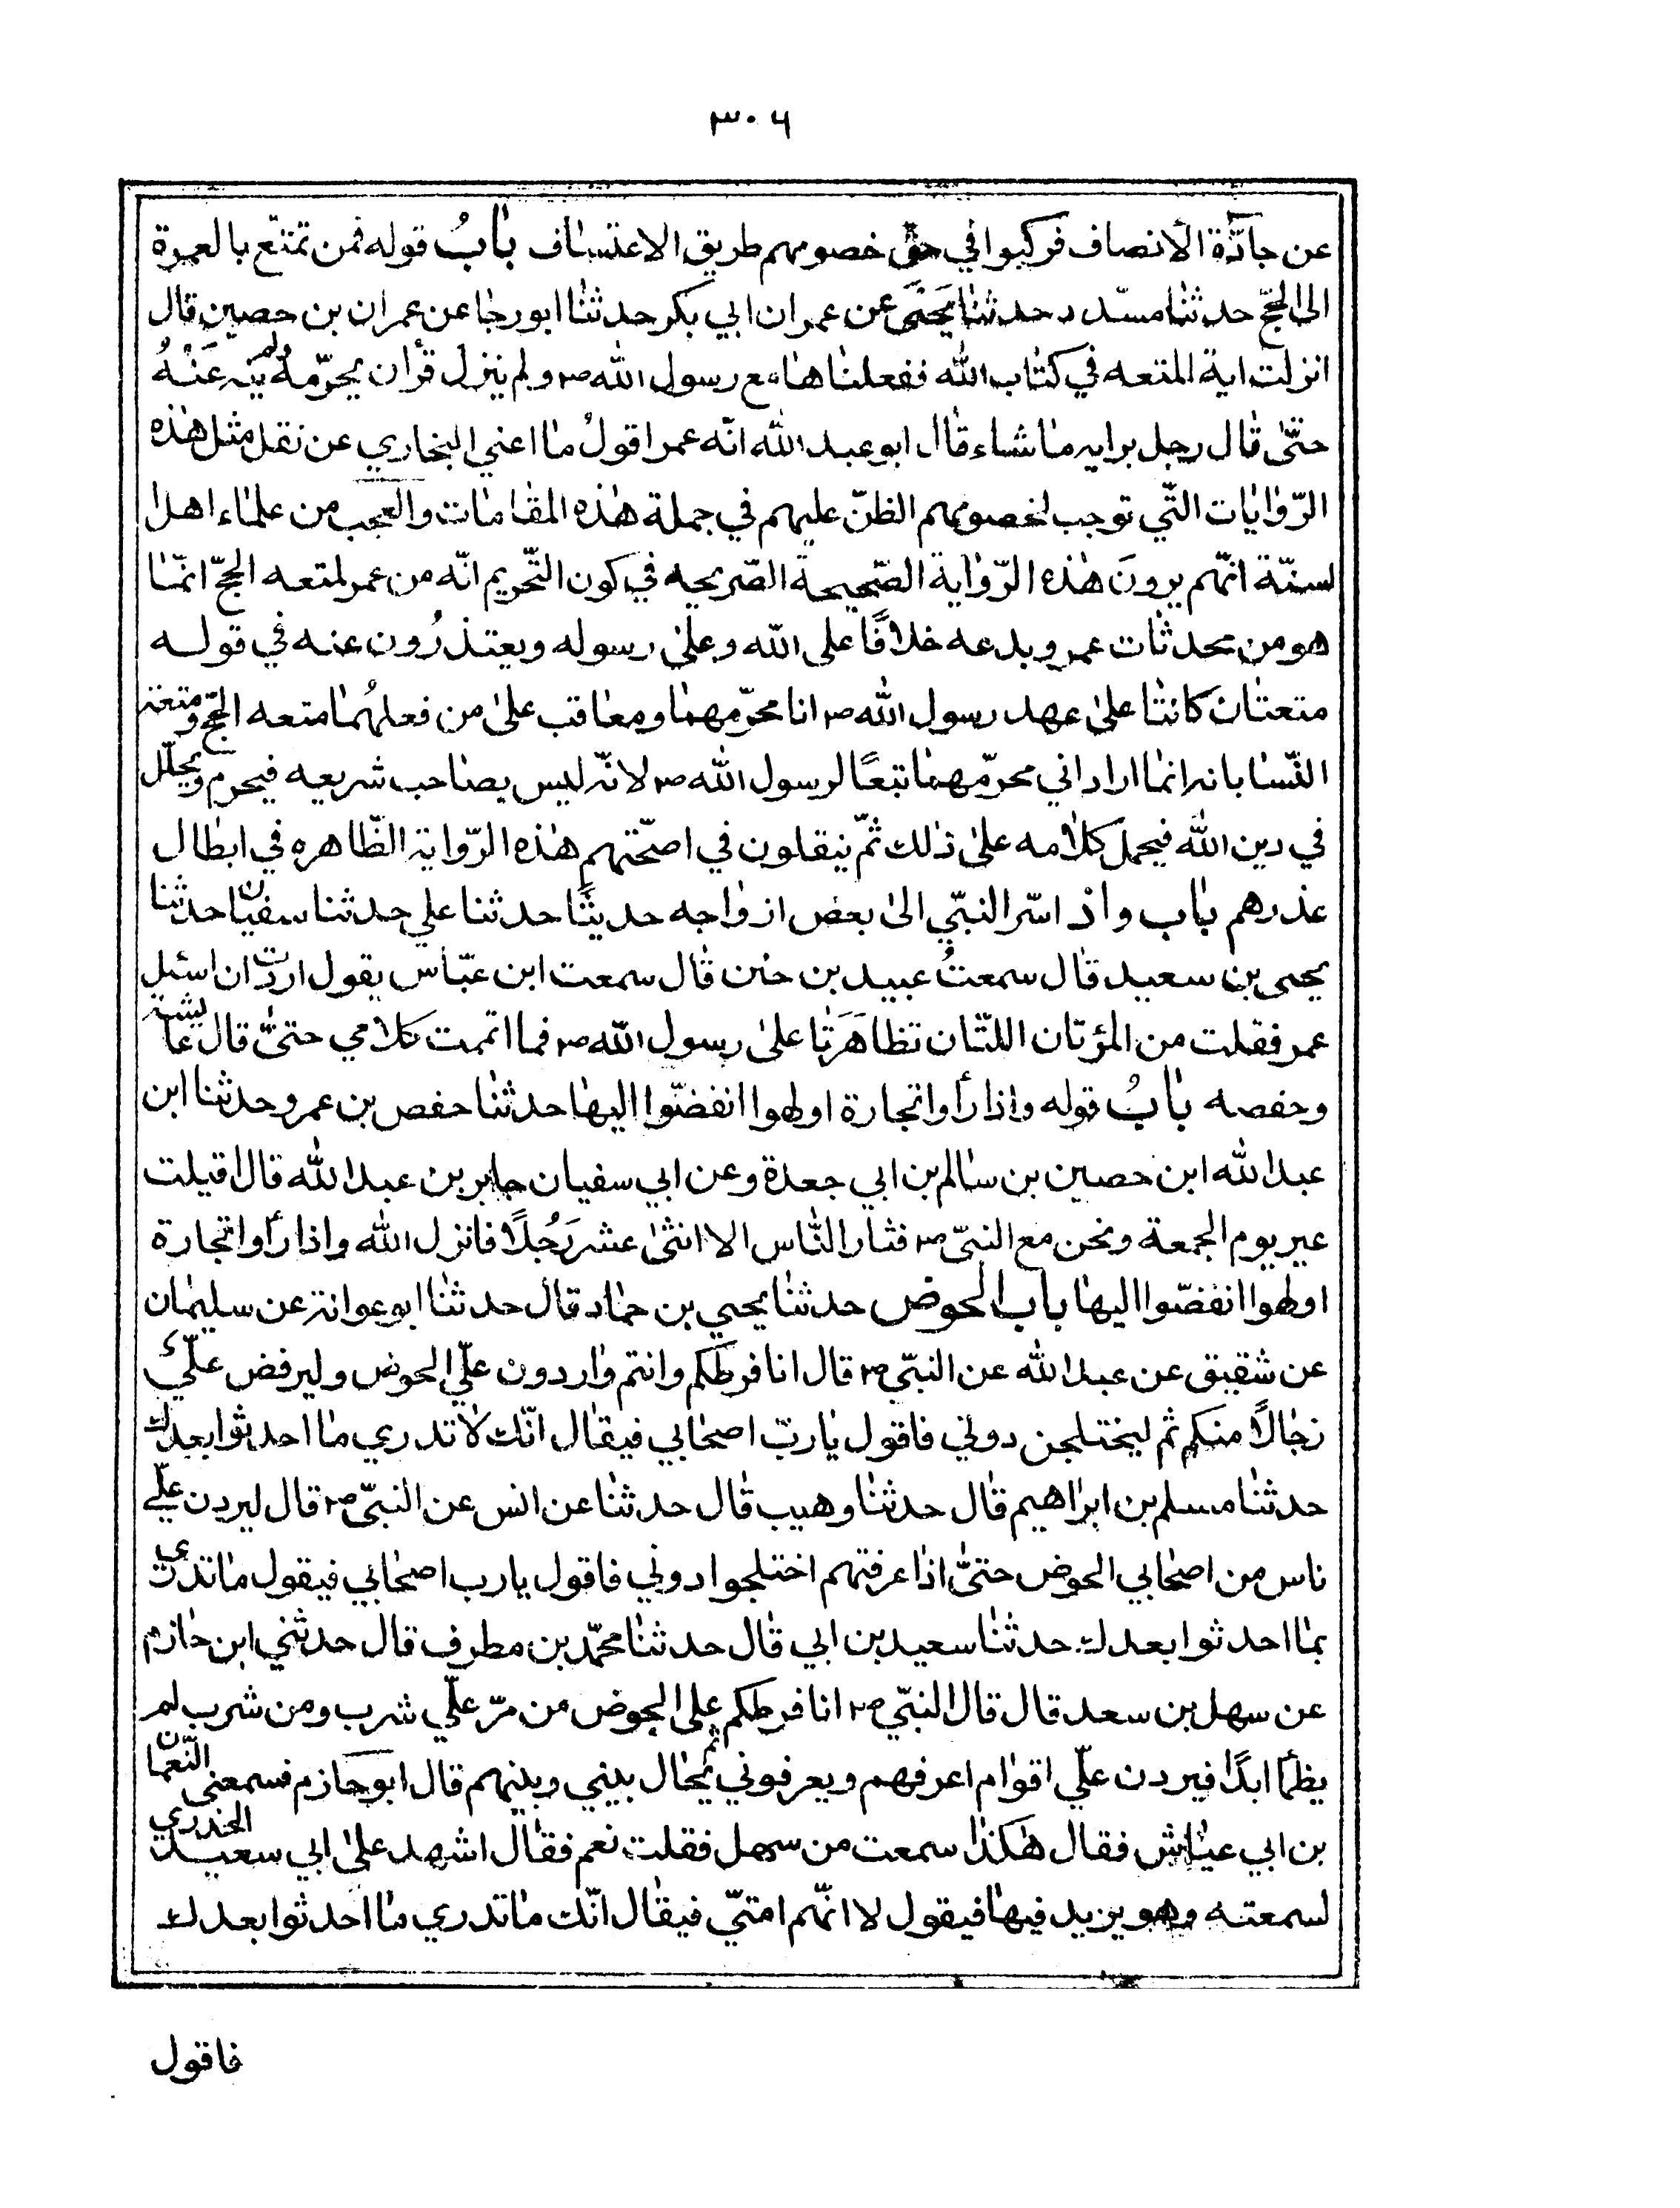 ٣٠٦
عن جادّة الأنصاف فركبوا في حق خصومهم طريق الاعتساف بابُ قوله فمن تمتّع بالعمرة
الى الحجّ حدثنا مسدّد حدثنا يَحيَى عن عمران ابي بكر حدثنا ابو رجا عن عمران بن حصين قال
انزلت اية المتعه في كتاب الله ففعلناها مع رسول الله ص ولم ينزل قرأن يحرّمه ولم ينه عَنْهُ
حتّى قال رجل برايه ما شاء قال ابو عبد الله انّه عمر اقولُ ما اعني البخاري عن نقل مثل هذه
الرّوايات التّي توجب لخصومهم الظنّ عليهم في جملة هذه المقامات والعجب من علماء اهل
لسنّة انّهم يروونَ هذه الرّواية الصّحيحة الصّريحه في كون التّحريم انّه من عمر لمتعه الحجّ انّما
هو من محدثات عمر وبدعه خلافًا على الله وعلى رسوله ويعتذرُون عنه في قوله
متعتان كانتا على عهد رسول الله ص انا محرّمهما ومعاقب على من فعلهُما متعه الحجّ ومتعة
النّسا بانه انما اراد اني محرّمهما تبعًا لرسول الله ص لانّه ليس بصاحب شريعه فيحرم ويحلّل
في دين الله فيحمل كلامه على ذلك ثمّ ينقلون في اصحّتهم هذه الرّواية الظّاهره في ابطال
عذرهم باب واذ اسّر النبّي الى بعض ازواجه حديثًا حدثنا علي حدثنا سفيان حدثنا
يحيى بن سعيد قال سمعتُ عبيد بن حنن قال سمعت ابن عبّاس يقول اردت ان اسئل
عمر فقلت من المؤتان اللتّان تظاهَرَتا على رسول الله ص فما اتممت كلامي حتىّ قال عايشة
وحفصه بابُ قوله واذا رأوا تجارة او لهوا انفضّوا اليها حدثنا حفص بن عمر وحدثنا ابن
عبد الله ابن حصين بن سالم بن ابي جعدة وعن ابي سفيان جابر بن عبد الله قال اقبلت
عير يوم الجمعة ونحن مع النبيّ ص فثار النّاس الا اثنى عشر رَجُلًا فانزل الله واذا رأوا تجارة
او لهوا انفضّوا اليها باب الحوض حدثنا يحيي بن حماد قال حدثنا ابو عوانة عن سليمان
عن شقيق عن عبد الله عن النبيّ ص قال انا فرطكم وانتم واردون علّي الحوض وليرفض علّي
رجالًا منكم ثم ليختلجن دوني فاقول يا ربّ اصحابي فيقال انّك لا تدري ما احدثوا بعدك
حدثنا مسلم بن ابراهيم قال حدثنا وهيب قال حدثنا عن انس عن النبيّ ص قال ليردن علّي
ناس من اصحابي الحوض حتىّ اذا عرفتهم اختلجوا دوني فاقول يا رب اصحابي فيقول ما تدري
بما احدثوا بعدك حدثنا سعيد بن ابي قال حدثنا محمّد بن مطرف قال حدثني ابن حازم
عن سهل بن سعد قال قال النبّي ص انا فرطكم على الحوض من مرّ علّي شرب ومن شرب لم
يظما ابدًا فيردن علّي اقوام اعرفهم ويعرفوني ثم يحال بيني وبينهم قال ابو حازم فسمعني النّعمان
بن ابي عيّاش فقال هكذا سمعت من سهل فقلت نعم فقال اشهد على ابي سعيد الخدري
لسمعته وهو يزيد فيها فيقول لا انّهم امتّي فيقال انّك ما تدري ما احدثوا بعدك
فاقول